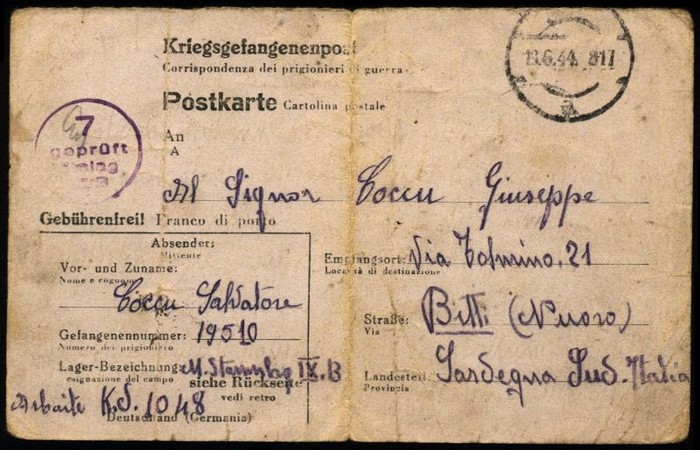 Kriegsgefangenenpost
Corrispondenza dei prigionieri di guerra
13.6.44. 817
Postkarte Cartolina postale
7
geprüft
Stalag
An
A
Al Signor Coccu Giuseppe
Gebührenfrei! Franco di porto
Absender:
Mittente
Vor- und Zuname:
Nome e cognome
Coccu Salvatore
Gefangenennummer: 19510
Numero del prigioniero
Lager-Bezeichnung: M. Stammlag IX.B
Designazione del campo
siehe Rückseite
vedi retro
Arbaite K.d. 1048
Deutschland (Germania)
Empfangsort: Via Tolmino. 21
Località di destinazione
Straße: Bitti (Nuoro)
Via
Landesteil: Sardegna Sud. Italia
Provincia